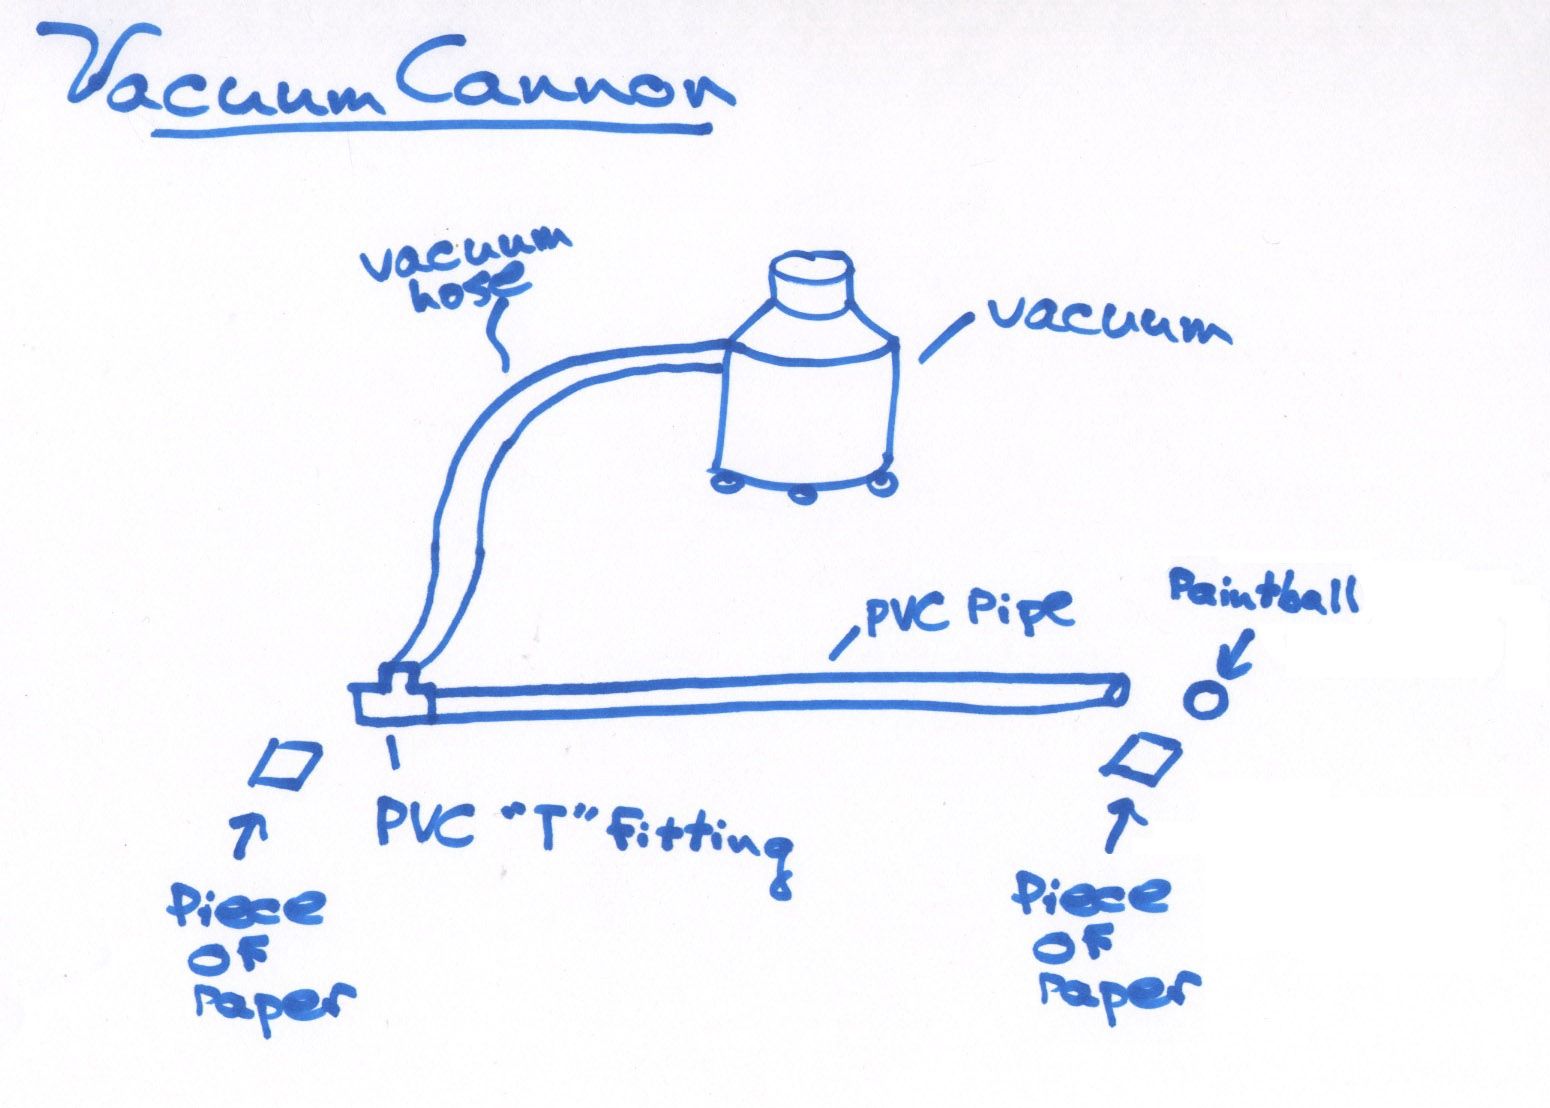 Vacuum Cannon
vacuum
hose
vacuum
PVC Pipe
Paintball
PVC "T" Fitting
Piece
of
Paper
Piece
of
Paper